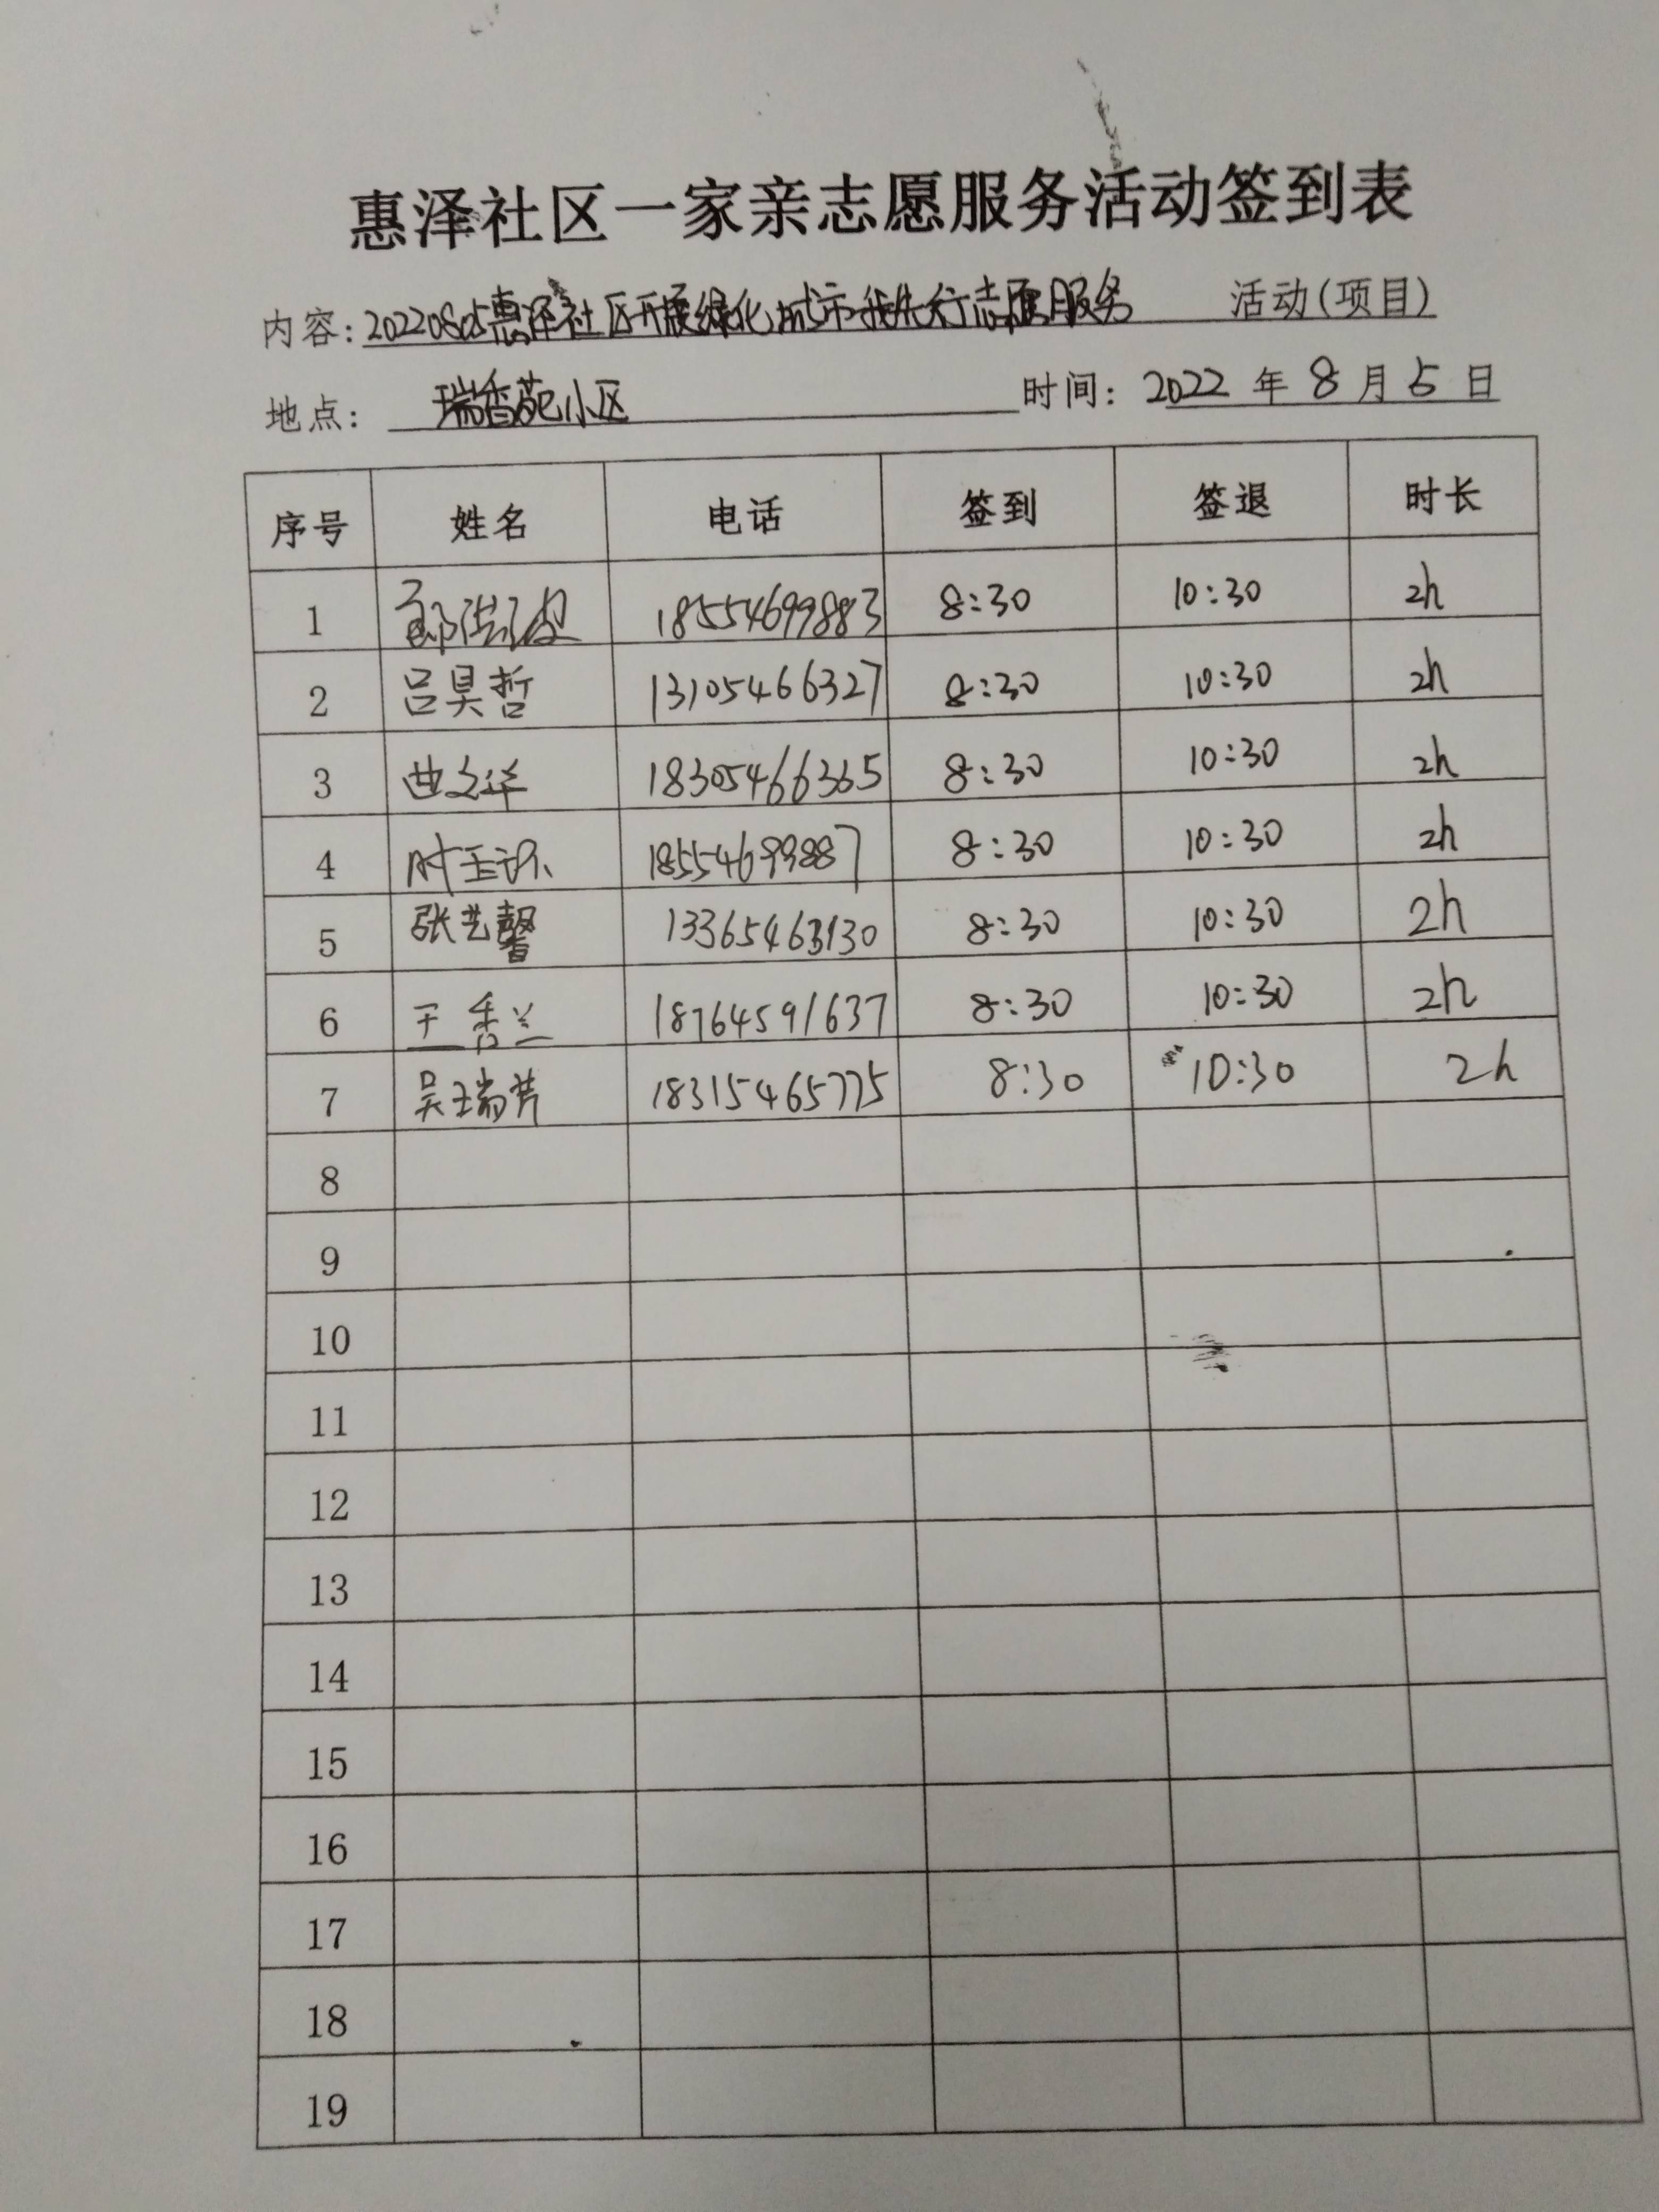 惠泽社区一家亲志愿服务活动签到表
内容: 20220805惠泽社区开展绿化城市我先行志愿服务 活动(项目)
地点: 瑞香苑小区 时间: 2022 年 8 月 5 日
序号 姓名 电话 签到 签退 时长
1 18554699883 8:30 10:30 2h
2 吕昊哲 13105466327 8:30 10:30 2h
3 曲文华 18305466365 8:30 10:30 2h
4 18554699887 8:30 10:30 2h
5 张艺馨 13365463130 8:30 10:30 2h
6 王秀兰 18764591637 8:30 10:30 2h
7 吴瑞芹 18315465775 8:30 10:30 2h
8
9
10
11
12
13
14
15
16
17
18
19